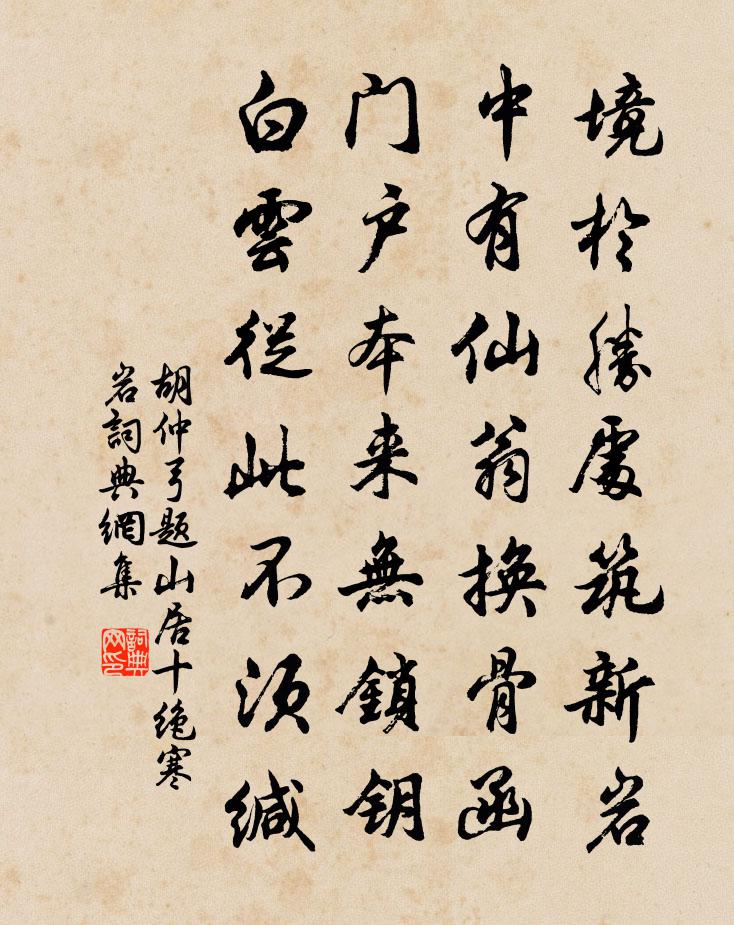 境於勝處筑新岩
中有仙翁换骨函
门户本来無鎖钥
白雲從此不須緘
胡仲弓题山居十绝寒
岩詞典網集
詞典网印